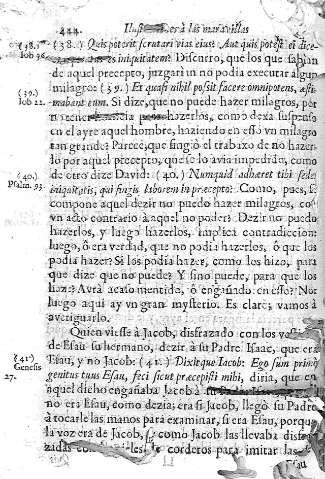 444. Ilust à las maravillas
(38.) (38.) Quis poterit scrutari vias eius? Aut quis potest ei dice-
Iob 36. iniquitatem? Discurro, que los que sabian
de aquel precepto, juzgarian no podia executar algun
(39.) milagro: (39.) Et quasi nihil posset facere omnipotens, æsti-
Iob 22. mabant eum. Si dize, que no puede hazer milagros, por
no tener para hazerlos, como dexa suspenso
en el ayre aquel hombre, haziendo en esso vn milagro
tan grande? Parece, que fingiò el trabaxo de no hazer-
lo por aquel precepto, que se lo avia impedido, como
(40.) de otro dize David: (40.) Numquid adhæret tibi sedes
Psalm. 93. iniquitatis, qui fingis laborem in præcepto? Como, pues, se
compone aquel dezir no puedo hazer milagros, cõ
vn acto contrario à aquel no poder? Dezir no puedo
hazerlos, y luego hazerlos, implica contradiccion:
luego, ò era verdad, que no podia hazerlos, ò que los
podia hazer? Si los podia hazer, como los hizo, para
que dize que no puede? Y sino puede, para que los
haze? Avrà acaso mentido, ò engañado en esso? No:
luego aqui ay vn gran mysterio. Es claro; vamos à
averiguarlo.
Quien viesse à Jacob, disfrazado con los
de Esau su hermano, dezir à su Padre Isaac, que era
(41.) Esau, y no Jacob: (41.) Dixitque Iacob: Ego sum primo
Genesis genitus tuus Esau, feci sicut præcepisti mihi, diria, que en
27. aquel dicho engañaba Jacob à su
no era Esau, como dezia; era si Jacob, llegò su Padre
à tocarle las manos para examinar, si era Esau, porque
la voz era de Jacob, y como Jacob las llevaba disfra-
zadas con de corderos para imitar las
Esau